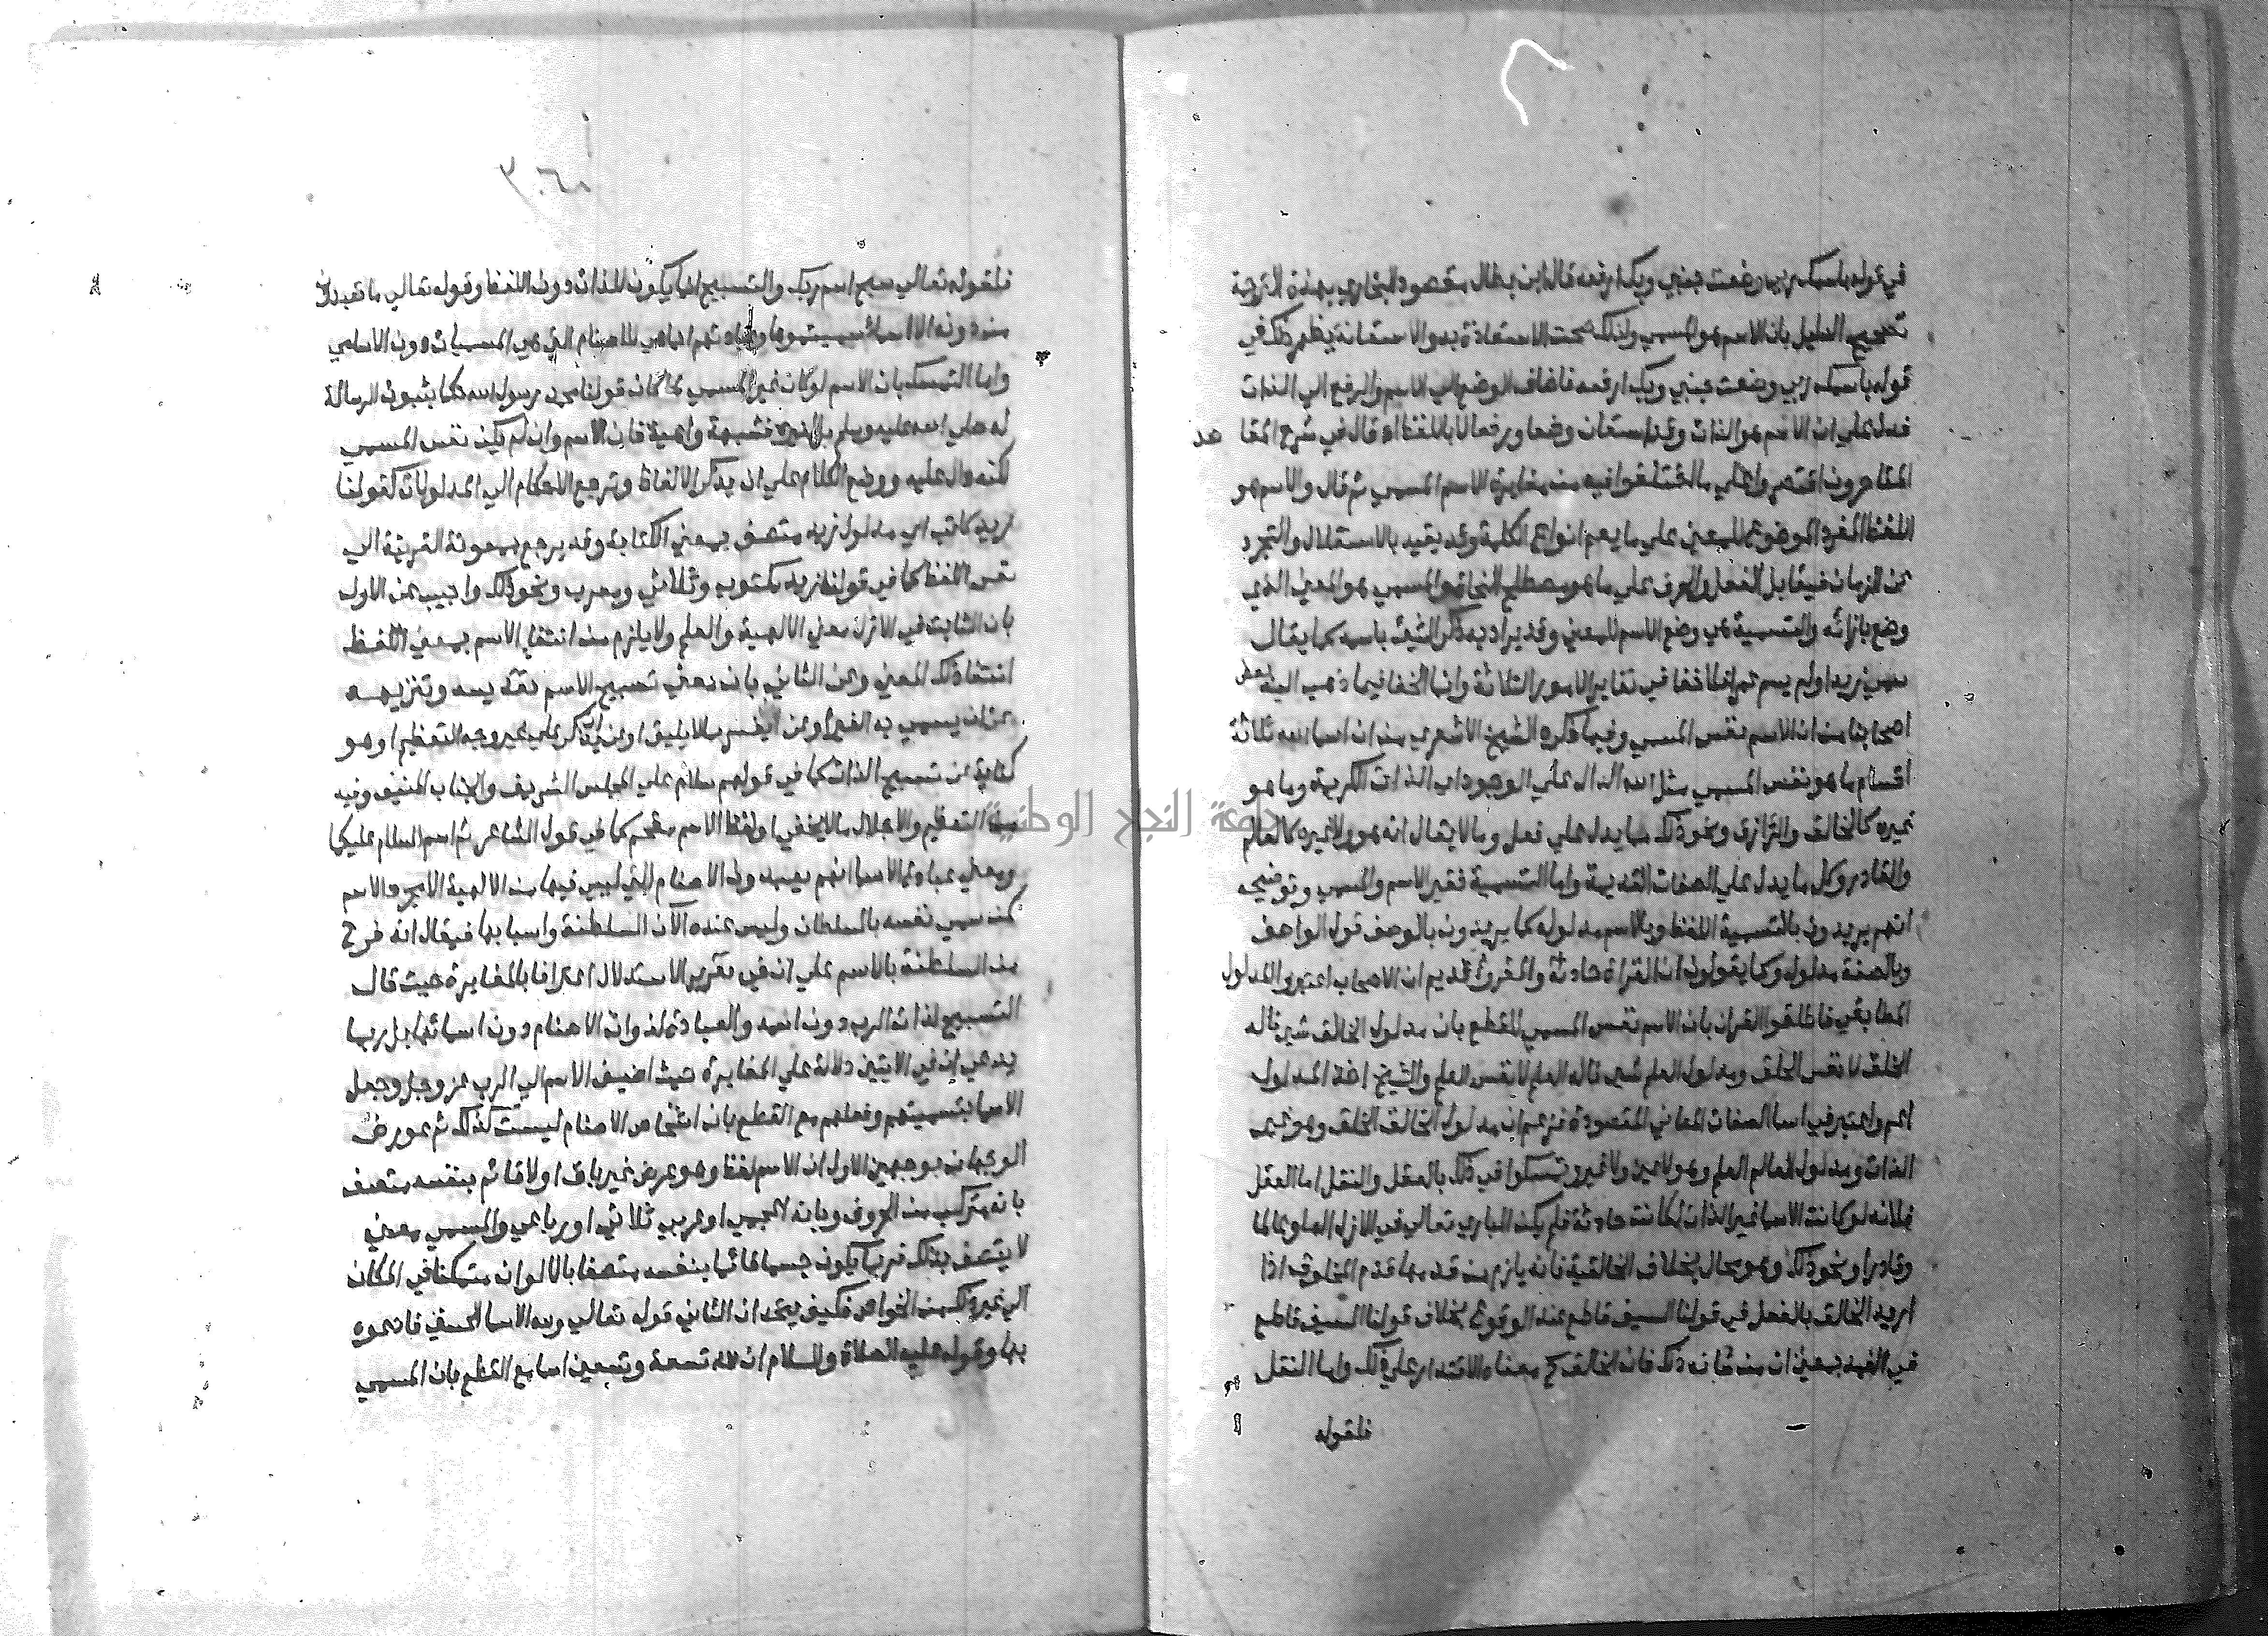 في قوله باسمك ربي وضعت جنبي وبك ارفعه قال ابن بطال مقصود البخاري بهذه الترجمة
تصحيح الدليل بان الاسم هو المسمي ولذلك صحت الاستعاذة به والاستعانة يظهر ذلك في
قوله باسمك ربي وضعت جنبي وبك ارفعه فاضاف الوضع الي الاسم والرفع الي الذات
فدل علي ان الاسم هو الذات وقد استعان وضعا ورفعا لا باللفظ اه قال في شرح المقا صد
المتاخرون اقتصروا علي ما اختلفوا فيه من مغايرة الاسم المسمي ثم قال والاسم هو
اللفظ المفرد الموضوع للمعني علي ما يعم انواع الكلمة وقد يقيد بالاستقلال والتجرد
عن الزمان فيقابل الفعل والحرف علي ما هو مصطلح النحاة والمسمي هو المعني الذي
وضع بازائه والتسمية هي وضع الاسم للمعني وقد يراد به ذكر الشيئ باسمه كما يقال
سمي زيدا ولم يسم عمرا فلا خفا في تغاير الامور الثلاثة وانما الخفا فيما ذهب اليه بعض
اصحابنا من ان الاسم نفس المسمي وفيما ذكره الشيخ الاشعري من ان اسما الله ثلاثة
اقسام ما هو نفس المسمي مثل الله الدال علي الوجود اي الذات الكريمة وما هو
غيره كالخالق والرازق ونحو ذلك مما يدل علي فعل وما لا يقال انه هو ولا غيره كالعالم
والقادر وكل ما يدل علي الصفات القديمة واما التسمية فغير الاسم والمسمي وتوضيحه
انهم يريدون بالتسمية اللفظ وبالاسم مدلوله كما يريدون بالوصف قول الواصف
وبالصفة مدلوله وكما يقولون ان القراة حادثة والمقروء قديم ان الاصحاب اعتبروا المدلول
المطابقي فاطلقوا القول بان الاسم نفس المسمي للقطع بان مدلول الخالق شيئ ماله
الخلق لا نفس الخلق ومدلول العلم شيئ ماله العلم لا نفس العلم والشيخ اخذ المدلول
اعم واعتبر في اسما الصفات المعاني المقصودة فزعم ان مدلول الخالق الخلق وهو غير
الذات ومدلول العالم العلم وهو لا عين ولا غير وتمسكوا في ذلك بالعقل والنقل اما العقل
فلانه لو كانت الاسما غير الذات لكانت حادثة فلم يكن الباري تعالي في الازل الها وعالما
وقادرا ونحو ذلك وهو محال بخلاف الخالقية فانه يلزم من قدمها قدم المخلوق اذا
اريد الخالق بالفعل في قولنا السيف قاطع عند الوقوع بخلاف قولنا السيف قاطع
في الغمد بمعني ان من شانه ذلك فان الخالق ح معناه الاقتدار علي ذلك واما النقل
فلقوله
فلقوله تعالي سبح اسم ربك والتسبيح انما يكون للذات دون اللفظ وقوله تعالي ما تعبدون
من دونه الا اسما سميتموها وعبادتهم انما هي للاصنام التي هي المسميات دون الاسامي
واما التمسك بان الاسم لو كان غير المسمي لما كان قولنا محمد رسول الله حكما بثبوت الرسالة
له صلي الله عليه وسلم بل لغيره فشبهة واهية فان الاسم وان لم يكن نفس المسمي
لكنه دال عليه ووضع الكلام علي ان يذكر الالفاظ وترجع الاحكام الي المدلولات كقولنا
زيد كاتب اي مدلول زيد متصف بمعني الكتابة وقد يرجع بمعونة القرينة الي
نفس اللفظ كما في قولنا زيد مكتوب وثلاثي ومعرب ونحو ذلك واجيب عن الاول
بان الثابت في الازل معني الالهية والعلم ولا يلزم من انتفا الاسم بمعني اللفظ
انتفا ذلك المعني وعن الثاني بان معني تسبيح الاسم تقديسه وتنزيهه
عن ان يسمي به الغير او عن ان يفسر بما لا يليق او عن ان يذكر علي غير وجه التعظيم او هو
كناية عن تسبيح الذات كما في قولهم سلام علي المجلس الشريف والجناب المنيف وفيه
من التعظيم والاجلال ما لا يخفي او لفظ الاسم مقحم كما في قول الشاعر ثم اسم السلام عليكما
ومعني عبادة الاسما انهم يعبدون الاصنام التي ليس فيها من الالهية الا مجرد الاسم
كمن سمي نفسه بالسلطان وليس عنده الات السلطنة واسبابها فيقال انه فرح
من السلطنة بالاسم علي ان في تقرير الاستدلال اعترافا بالمغايرة حيث قال
التسبيح لذات الرب دون اسمه والعبادة لذوات الاصنام دون اسمائها بل ربما
يدعي ان في الايتين دلالة علي المغايرة حيث اضيف الاسم الي الرب عز وجل وجعل
الاسما بتسميتهم وفعلهم مع القطع بان اشخاص الاصنام ليست كذلك ثم عورض
الوجهان بوجهين الاول ان الاسم لفظ وهو عرض غير باق ولا قائم بنفسه متصف
بانه متركب من الحروف وبانه اعجمي او عربي ثلاثي او رباعي والمسمي معني
لا يتصف بذلك فربما يكون جسما قائما بنفسه متصفا بالالوان متمكنا في المكان
الي غير ذلك من الخواص فكيف يتحدان الثاني قوله تعالي ولله الاسما الحسني فادعوه
بها وقوله عليه الصلاة والسلام ان لله تسعة وتسعين اسما مع القطع بان المسمي
جامعة النجاح الوطنية